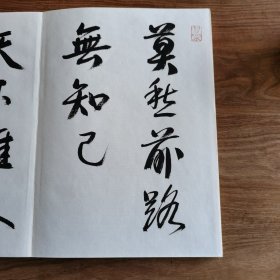 莫愁前路
無知己
天下誰人